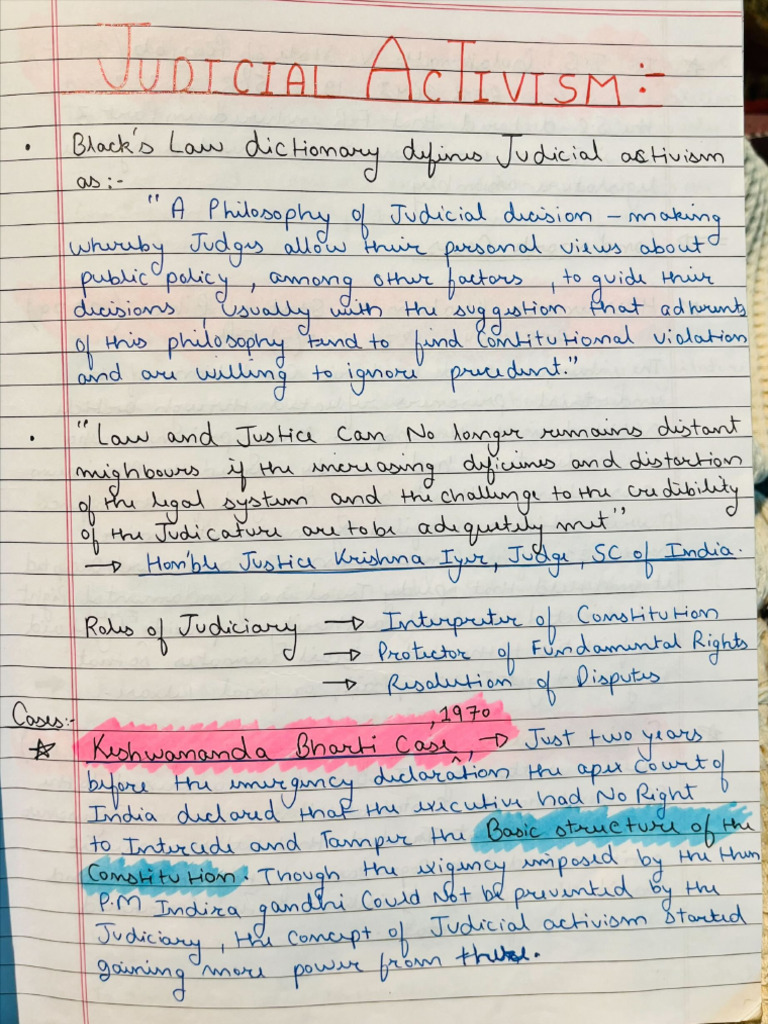 JUDICIAL ACTIVISM :-
• Black's Law dictionary defines Judicial activism
as:-
"A Philosophy of Judicial decision - making
whereby Judges allow their personal views about
public policy, among other factors, to guide their
decisions, usually with the suggestion that adherents
of this philosophy tend to find Constitutional violation
and are willing to ignore precedent."
• "Law and Justice Can No longer remains distant
neighbours if the increasing deficines and distortion
of the legal system and the challenge to the credibility
of the Judicature are to be adequetely met"
→ Hon'ble Justice Krishna Iyer, Judge, SC of India.
Roles of Judiciary → Interpreter of Constitution
→ Protector of Fundamental Rights
→ Resolution of Disputes
Cases:-
☆ Keshwananda Bharti Case, 1970, → Just two years
before the emergency declaration the apex Court of
India declared that the executive had No Right
to Intercede and Tamper the Basic structure of the
Constitution. Though the exigency imposed by the then
P.M Indira gandhi Could Not be prevented by the
Judiciary, the concept of Judicial activism started
gaining more power from there.